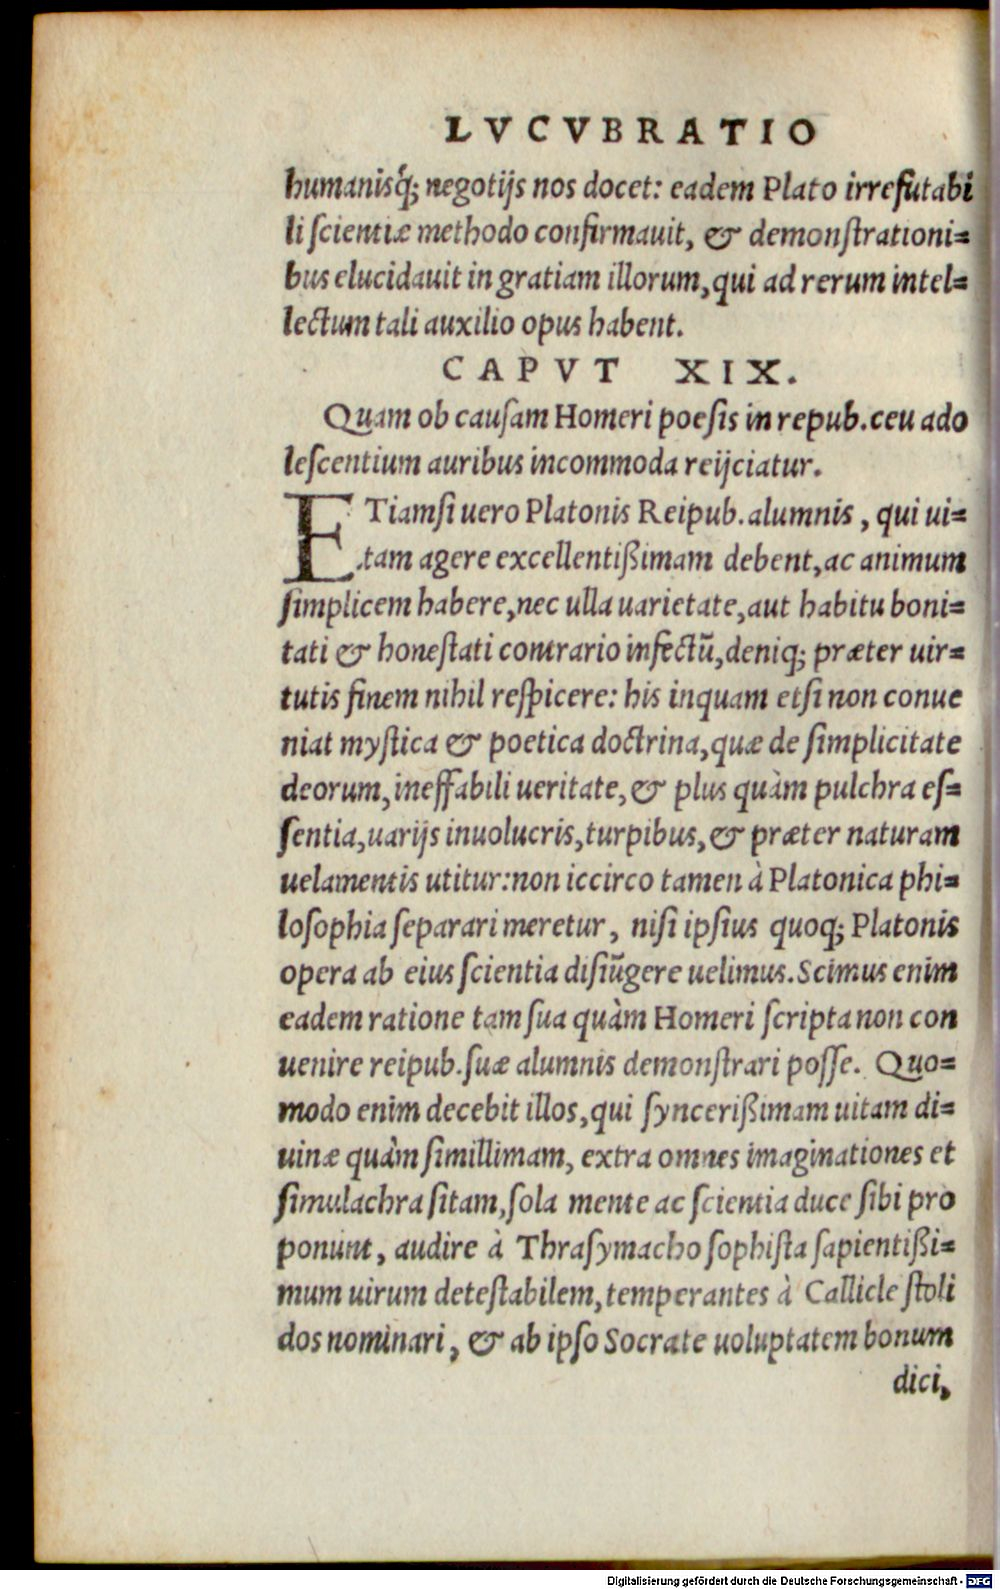 LVCVBRATIO
humanisq́; negotijs nos docet: eadem Plato irrefutabi
li ſcientiæ methodo confirmauit, & demonſtrationi=
bus elucidauit in gratiam illorum, qui ad rerum intel=
lectum tali auxilio opus habent.
CAPVT XIX.
Quam ob cauſam Homeri poeſis in repub. ceu ado
leſcentium auribus incommoda reijciatur.
ETiamſi uero Platonis Reipub. alumnis, qui ui=
tam agere excellentißimam debent, ac animum
ſimplicem habere, nec ulla uarietate, aut habitu boni=
tati & honeſtati contrario infectū, deniq; præter uir=
tutis finem nihil reſpicere: his inquam etſi non conue
niat myſtica & poetica doctrina, quæ de ſimplicitate
deorum, ineffabili ueritate, & plus quàm pulchra eſ=
ſentia, uarijs inuolucris, turpibus, & præter naturam
uelamentis utitur: non iccirco tamen à Platonica phi=
loſophia ſeparari meretur, niſi ipſius quoq; Platonis
opera ab eius ſcientia diſiūgere uelimus. Scimus enim
eadem ratione tam ſua quàm Homeri ſcripta non con
uenire reipub. ſuæ alumnis demonſtrari poſſe. Quo=
modo enim decebit illos, qui ſyncerißimam uitam di=
uinæ quàm ſimillimam, extra omnes imaginationes et
ſimulachra ſitam, ſola mente ac ſcientia duce ſibi pro
ponunt, audire à Thraſymacho ſophiſta ſapientißi=
mum uirum deteſtabilem, temperantes à Callicle ſtoli
dos nominari, & ab ipſo Socrate uoluptatem bonum
dici,
Digitalisierung gefördert durch die Deutsche Forschungsgemeinschaft - DFG